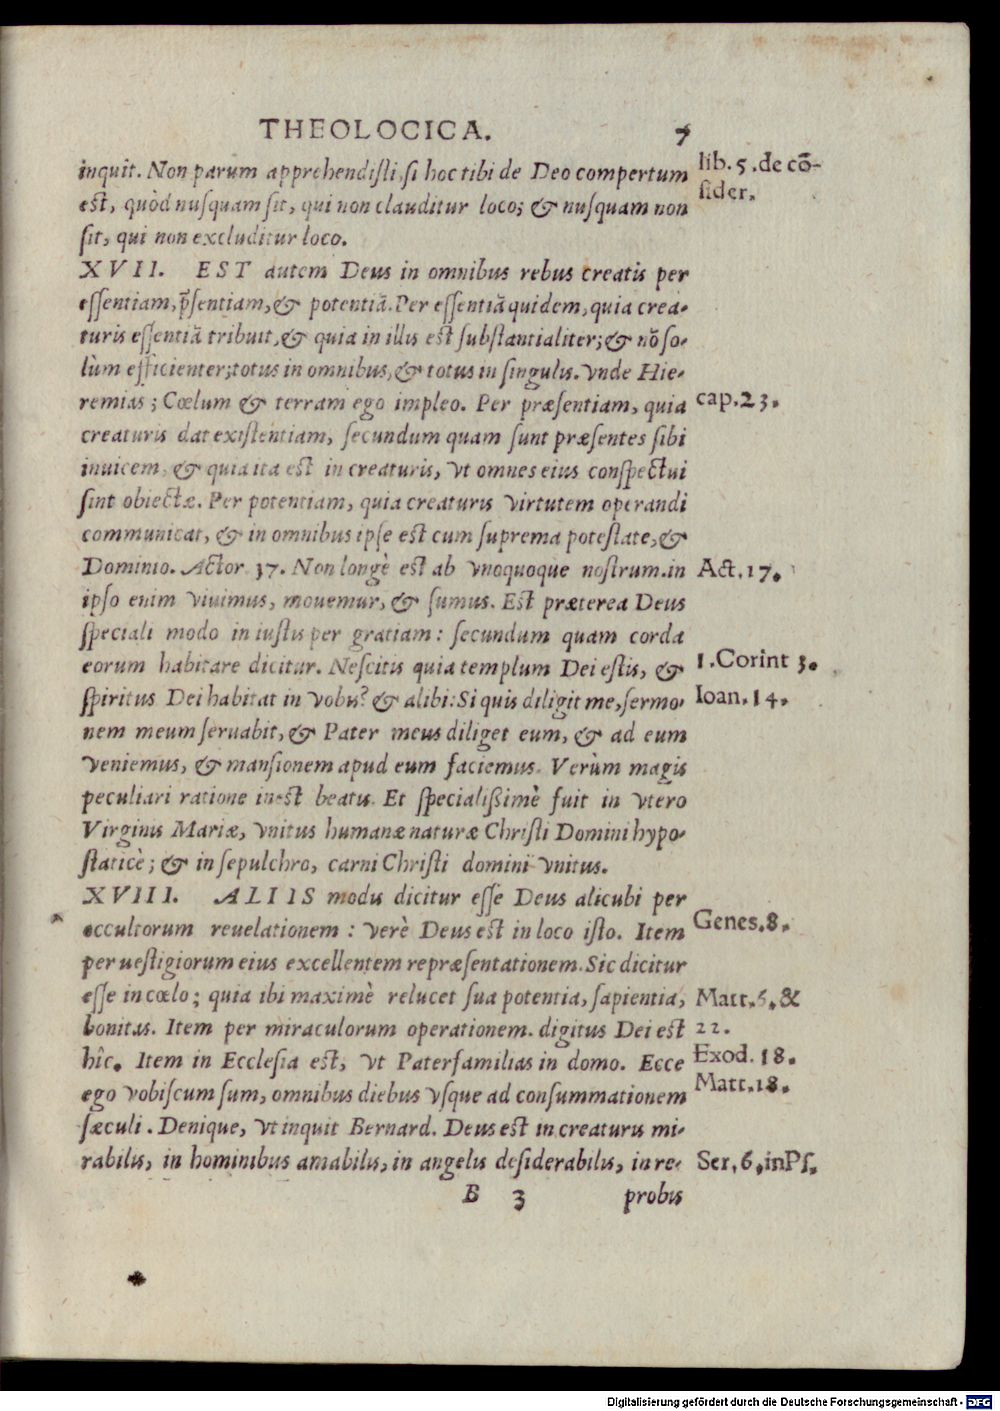 THEOLOGICA. 7
inquit. Non parum apprehendiſti, ſi hoc tibi de Deo compertum
lib. 5. de cō-
eſt, quòd nuſquam ſit, qui non clauditur loco; & nuſquam non
ſider.
ſit, qui non excluditur loco.
XVII. EST autem Deus in omnibus rebus creatis per
eſſentiam, p̄ſentiam, & potentiā. Per eſſentiā quidem, quia crea-
turis eſſentiā tribuit, & quia in illis eſt ſubſtantialiter; & nō ſo-
lùm efficienter; totus in omnibus, & totus in ſingulis. Vnde Hie-
remias; Cœlum & terram ego impleo. Per præſentiam, quia
cap. 23.
creaturis dat exiſtentiam, ſecundum quam ſunt præſentes ſibi
inuicem, & quia ita eſt in creaturis, vt omnes eius conſpectui
ſint obiectæ. Per potentiam, quia creaturis virtutem operandi
communicat, & in omnibus ipſe eſt cum ſuprema poteſtate, &
Dominio. Actor. 37. Non longè eſt ab vnoquoque noſtrum. in
Act. 17.
ipſo enim viuimus, mouemur, & ſumus. Eſt præterea Deus
ſpeciali modo in iuſtis per gratiam: ſecundum quam corda
eorum habitare dicitur. Neſcitis quia templum Dei eſtis, &
1. Corint 3.
ſpiritus Dei habitat in vobis? & alibi: Si quis diligit me, ſermo-
Ioan. 14.
nem meum ſeruabit, & Pater meus diliget eum, & ad eum
veniemus, & manſionem apud eum faciemus. Verùm magis
peculiari ratione ineſt beatis. Et ſpecialißimè fuit in vtero
Virginis Mariæ, vnitus humanæ naturæ Chriſti Domini hypo-
ſtaticè; & in ſepulchro, carni Chriſti domini vnitus.
XVIII. ALIIS modis dicitur eſſe Deus alicubi per
occultorum reuelationem: verè Deus eſt in loco iſto. Item
Geneſ. 8.
per ueſtigiorum eius excellentem repræſentationem. Sic dicitur
eſſe in cœlo; quia ibi maximè relucet ſua potentia, ſapientia,
Matt. 5. &
bonitas. Item per miraculorum operationem. digitus Dei eſt
22.
hîc. Item in Eccleſia eſt, vt Paterfamilias in domo. Ecce
Exod. 18.
ego vobiſcum ſum, omnibus diebus vſque ad conſummationem
Matt. 18.
ſæculi. Denique, vt inquit Bernard. Deus eſt in creaturis mi-
rabilis, in hominibus amabilis, in angelis deſiderabilis, in re-
Ser. 6. in Pſ.
B 3 probis
Digitalisierung gefördert durch die Deutsche Forschungsgemeinschaft - DFG